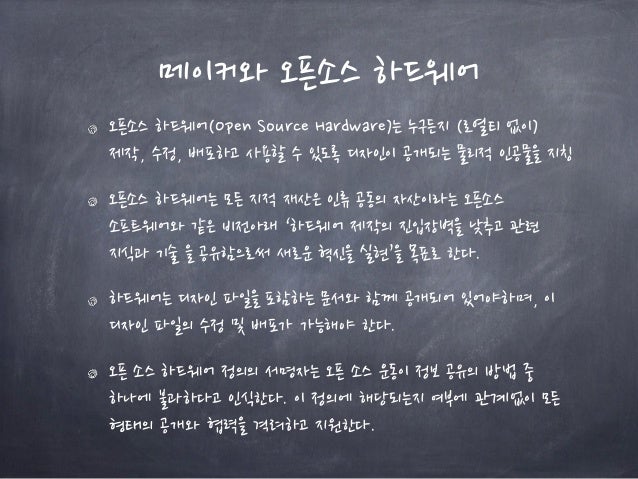 메이커와 오픈소스 하드웨어
오픈소스 하드웨어(Open Source Hardware)는 누구든지 (로열티 없이)
제작, 수정, 배포하고 사용할 수 있도록 디자인이 공개되는 물리적 인공물을 지칭
오픈소스 하드웨어는 모든 지적 재산은 인류 공동의 자산이라는 오픈소스
소프트웨어와 같은 비전아래 ‘하드웨어 제작의 진입장벽을 낮추고 관련
지식과 기술 을 공유함으로써 새로운 혁신을 실현’을 목표로 한다.
하드웨어는 디자인 파일을 포함하는 문서와 함께 공개되어 있어야하며, 이
디자인 파일의 수정 및 배포가 가능해야 한다.
오픈 소스 하드웨어 정의의 서명자는 오픈 소스 운동이 정보 공유의 방법 중
하나에 불과하다고 인식한다. 이 정의에 해당되는지 여부에 관계없이 모든
형태의 공개와 협력을 격려하고 지원한다.